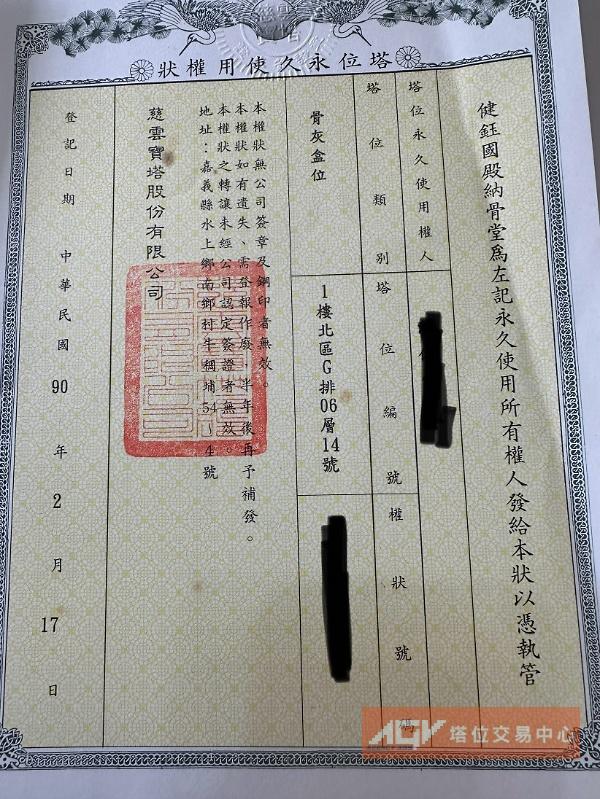 塔位永久使用權狀
健鈺國殿納骨堂為左記永久使用所有權人發給本狀以憑執管
塔位永久使用權人
塔位類別
塔位編號
權狀號碼
骨灰盒位
1樓北區G排06層14號
本權狀無公司簽章及鋼印者無效。
本權狀如有遺失、需登報作廢 半年後再予補發。
本權狀之轉讓未經公司認定簽證者無效。
地址：嘉義縣水上鄉南鄉村牛稠埔54 4號
慈雲寶塔股份有限公司
登記日期 中華民國 90 年 2 月 17 日
ACY 塔位交易中心